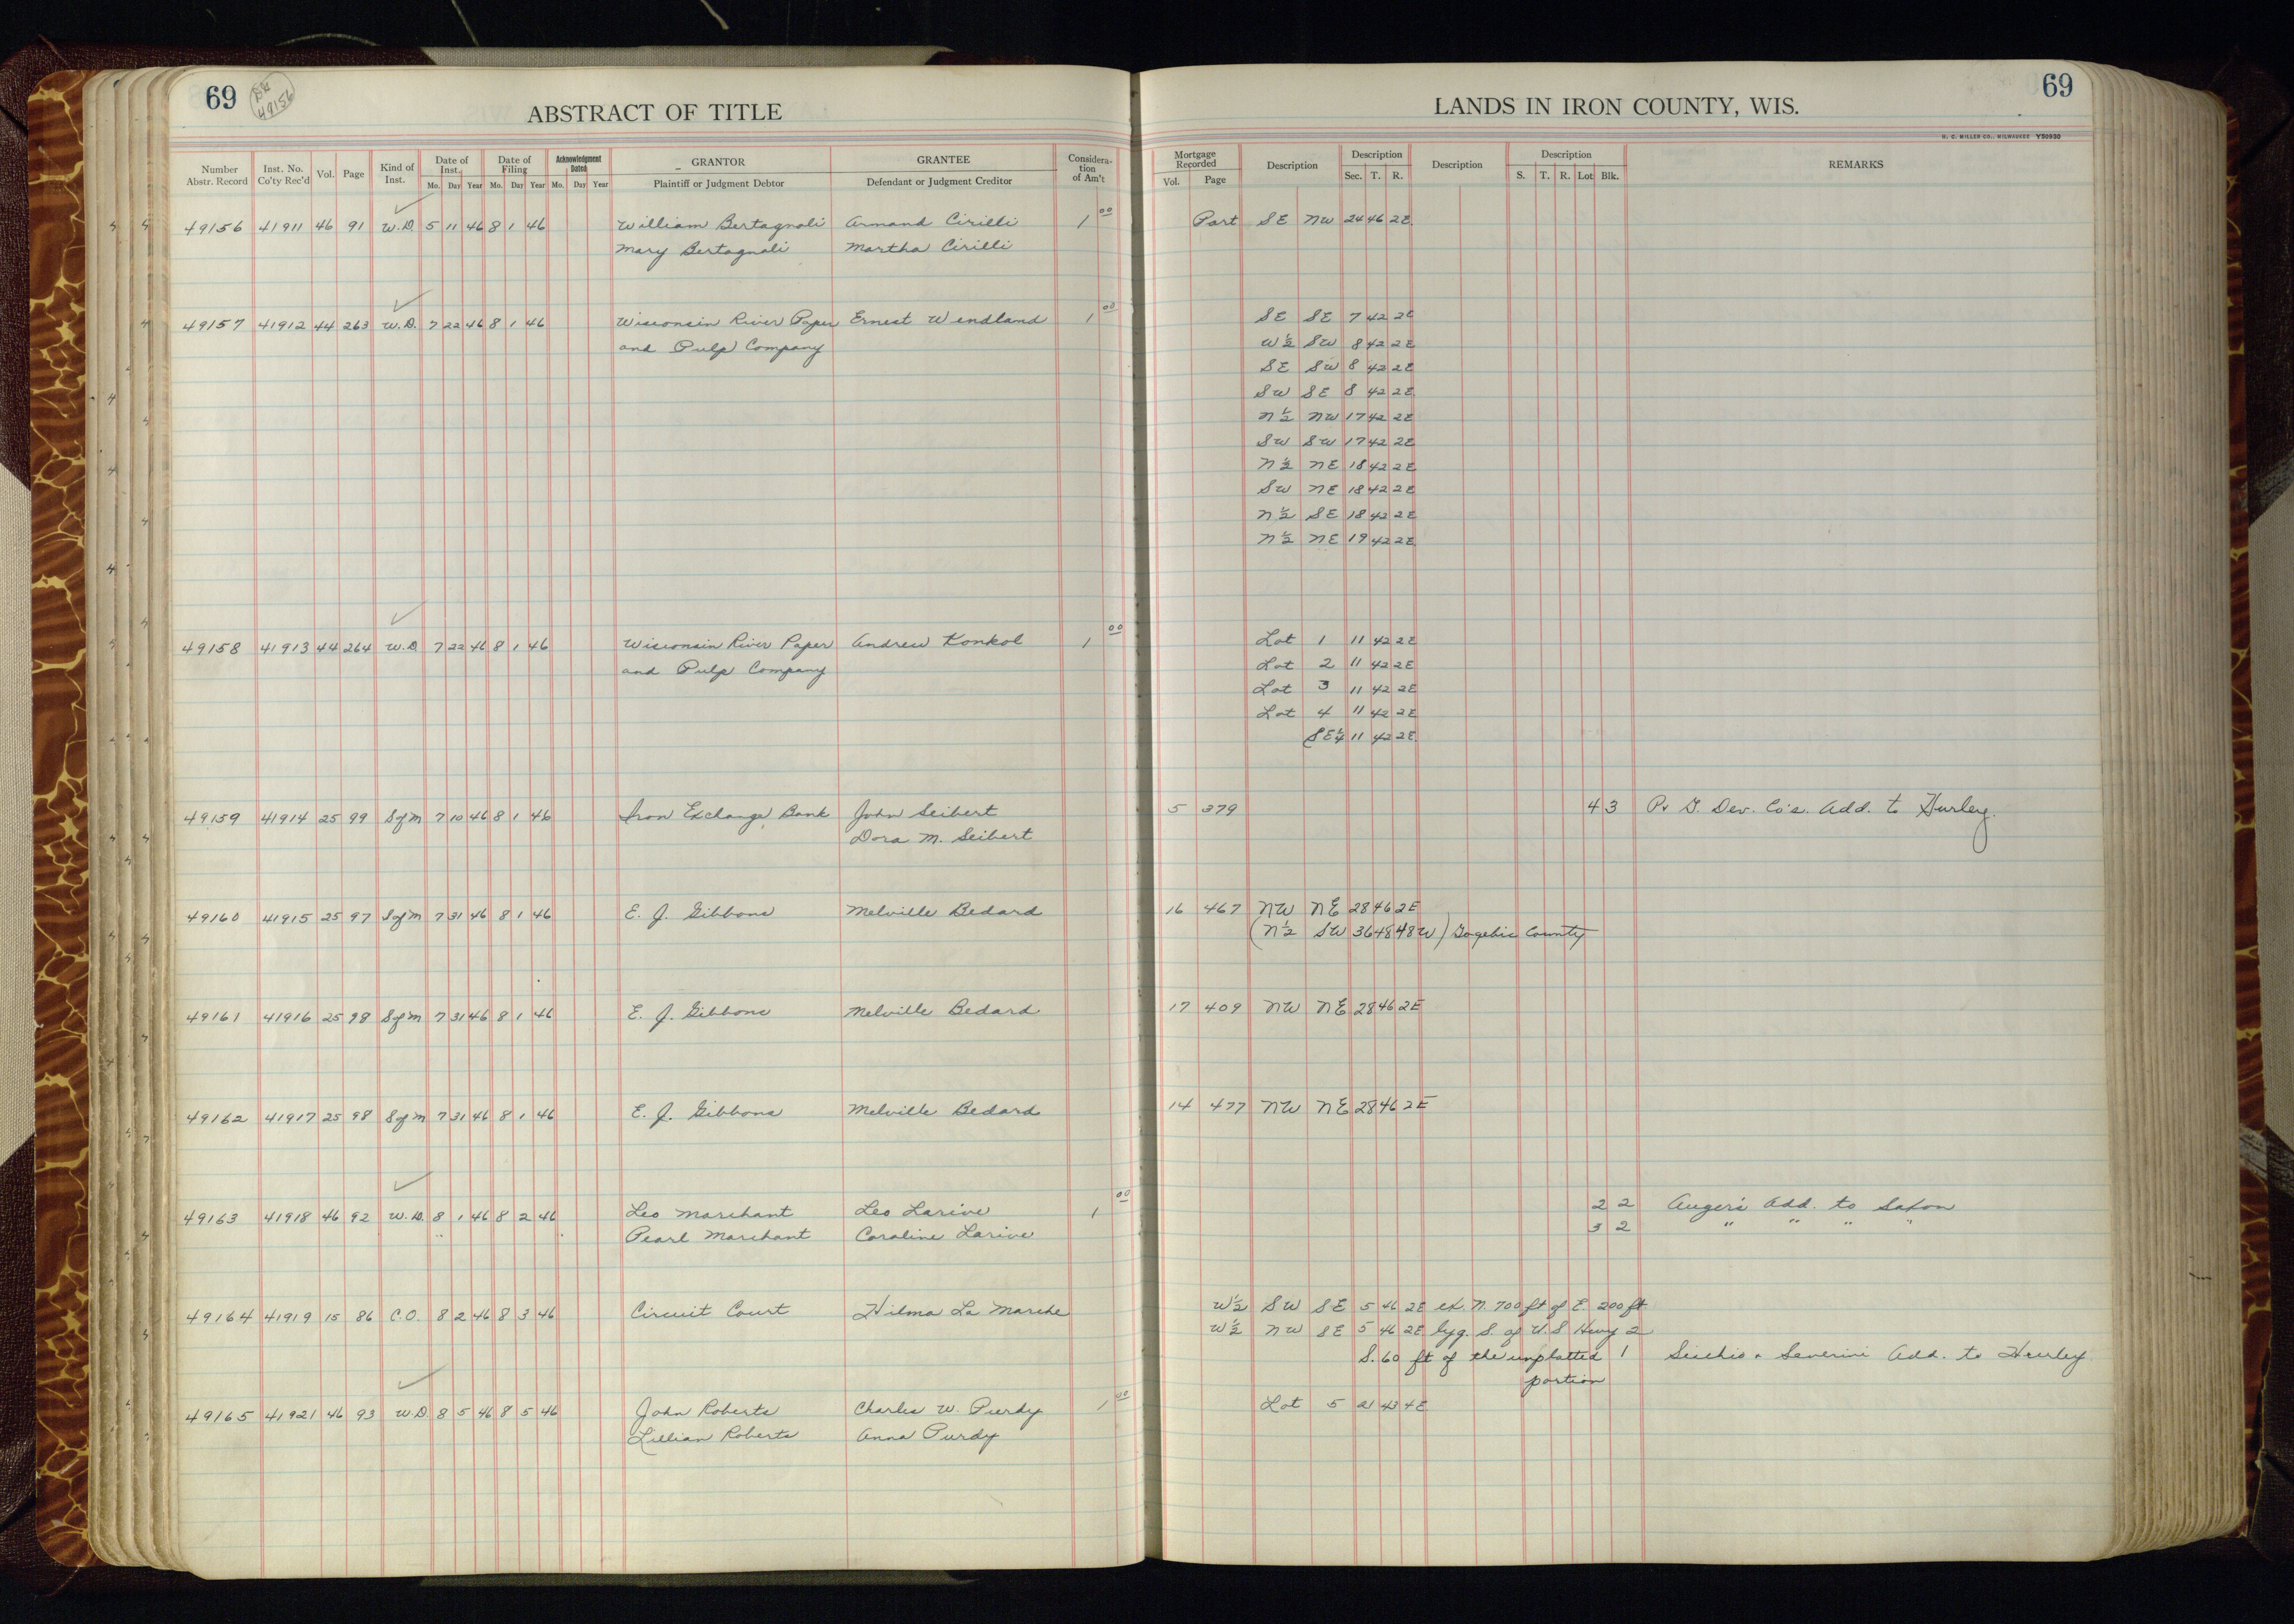 69 DH 49156
ABSTRACT OF TITLE
LANDS IN IRON COUNTY, WIS.
69
H. C. MILLER CO., MILWAUKEE Y50930
Number Abstr. Record Inst. No. Co'ty Rec'd Vol. Page Kind of Inst. Date of Inst. Mo. Day Year Date of Filing Mo. Day Year Acknowledgment Dated Mo. Day Year GRANTOR Plaintiff or Judgment Debtor GRANTEE Defendant or Judgment Creditor Considera-tion of Am't Mortgage Recorded Vol. Page Description Description Sec. T. R. Description Description S. T. R. Lot Blk. REMARKS
49156 41911 46 91 W.D. 5 11 46 8 1 46 William Bertagnoli Armand Cirilli 1 00 Part SE NW 24 46 2E
Mary Bertagnoli Martha Cirilli
49157 41912 44 263 W.D. 7 22 46 8 1 46 Wisconsin River Paper Ernest Wendland 1 00 SE SE 7 42 2E
and Pulp Company W½ SW 8 42 2E
SE SW 8 42 2E
SW SE 8 42 2E
N½ NW 17 42 2E
SW SW 17 42 2E
N½ NE 18 42 2E
SW NE 18 42 2E
N½ SE 18 42 2E
N½ NE 19 42 2E
49158 41913 44 264 W.D. 7 22 46 8 1 46 Wisconsin River Paper Andrew Konkol 1 00 Lot 1 11 42 2E
and Pulp Company Lot 2 11 42 2E
Lot 3 11 42 2E
Lot 4 11 42 2E
SE¼ 11 42 2E
49159 41914 25 99 S of M 7 10 46 8 1 46 Iron Exchange Bank John Seibert 5 379 4 3 P. & G. Dev. Co's. Add. to Hurley.
Dora M. Seibert
49160 41915 25 97 S of M 7 31 46 8 1 46 E. J. Gibbons Melville Bedard 16 467 NW NE 28 46 2E
(N½ SW 36 48 48W) Gogebic County
49161 41916 25 98 S of M 7 31 46 8 1 46 E. J. Gibbons Melville Bedard 17 409 NW NE 28 46 2E
49162 41917 25 98 S of M 7 31 46 8 1 46 E. J. Gibbons Melville Bedard 14 477 NW NE 28 46 2E
49163 41918 46 92 W.D. 8 1 46 8 2 46 Leo Marchant Leo Larive 1 00 2 2 Auger's Add. to Saxon
Pearl Marchant Caroline Larive 3 2 " " " "
49164 41919 15 86 C.O. 8 2 46 8 3 46 Circuit Court Hilma La Marche W½ SW SE 5 46 2E ex. N. 700 ft of E. 200 ft.
W½ NW SE 5 46 2E lyg. S. of U.S Hwy 2
S. 60 ft of the unplatted 1 & Severini Add. to Hurley
portion
49165 41921 46 93 W.D. 8 5 46 8 5 46 John Roberts Charles W. Purdy 1 00 Lot 5 21 43 4E
Lillian Roberts Anna Purdy